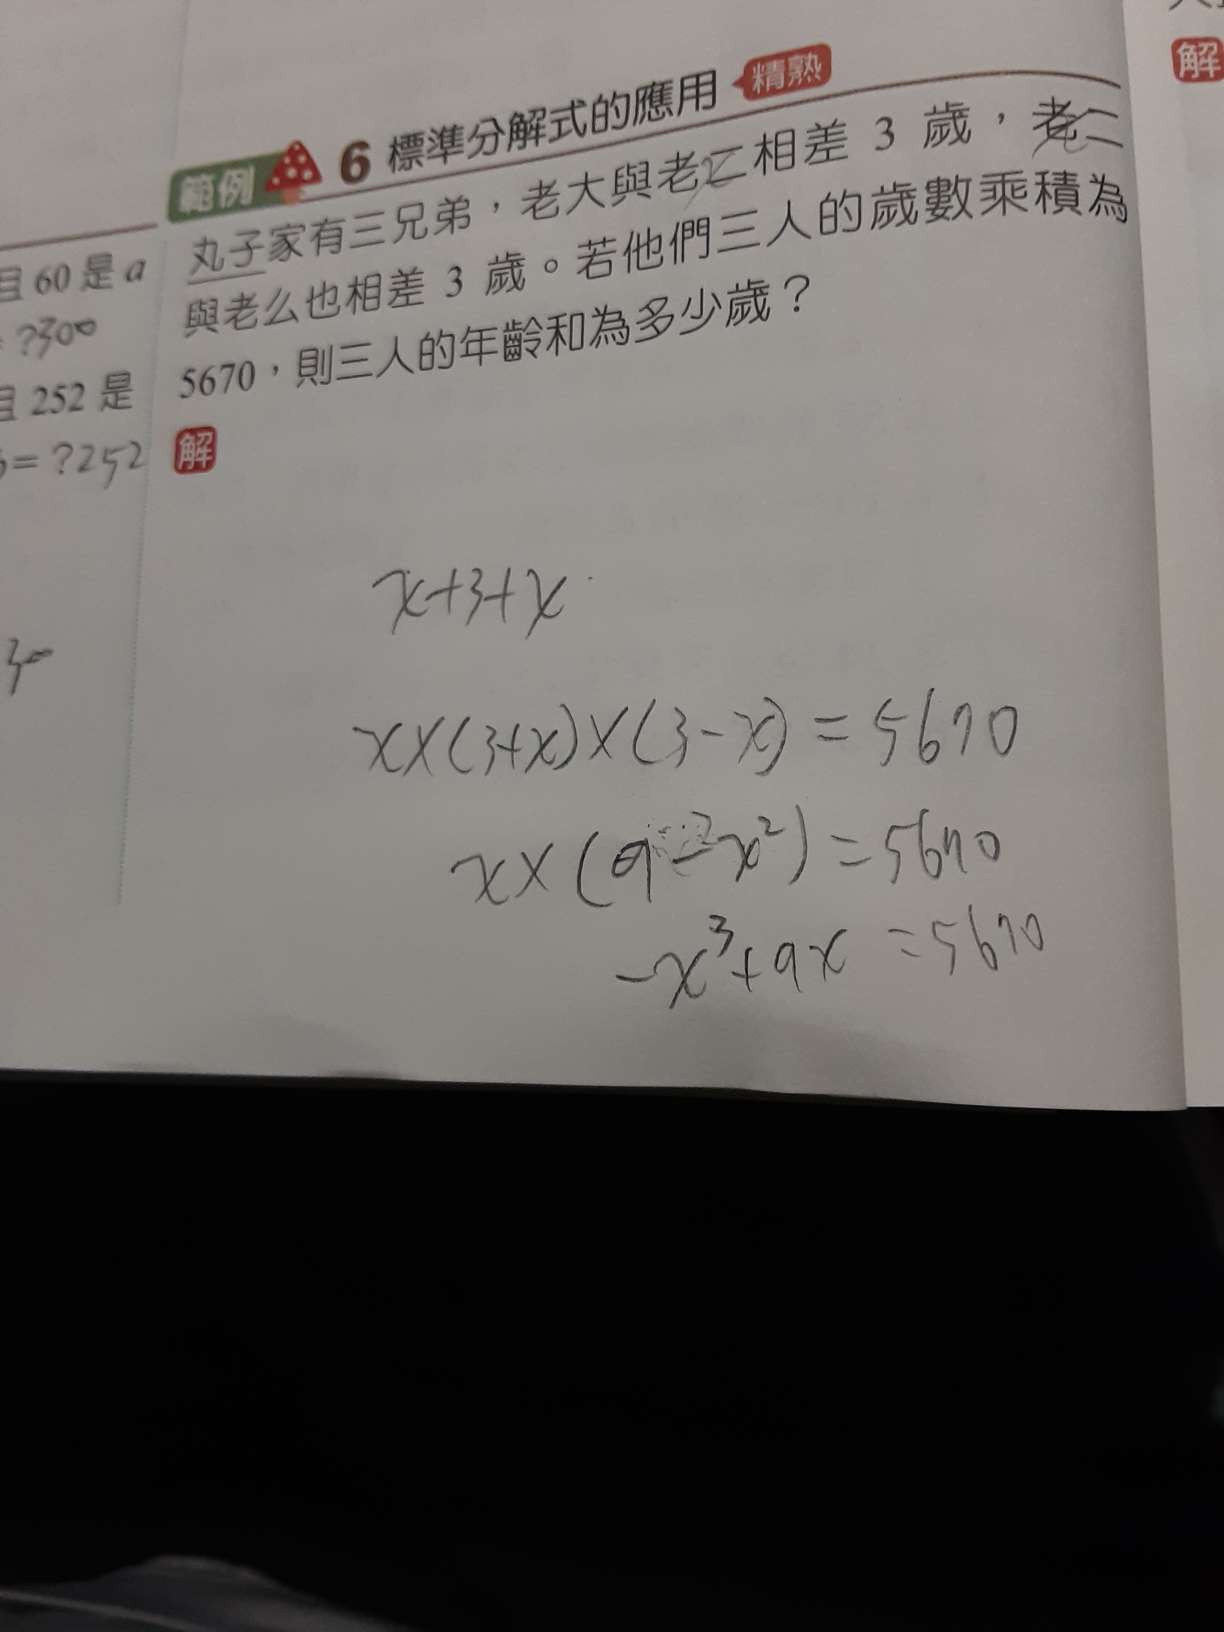 解
範例 6 標準分解式的應用 精熟
丸子家有三兄弟，老大與老二相差 3 歲，老二
與老么也相差 3 歲。若他們三人的歲數乘積為
5670，則三人的年齡和為多少歲？
解
x+3+x
x×(3+x)×(3-x)=5670
x×(9-x²)=5670
-x³+9x=5670
且 60 是 a
= ?300
且 252 是
b= ?252
30